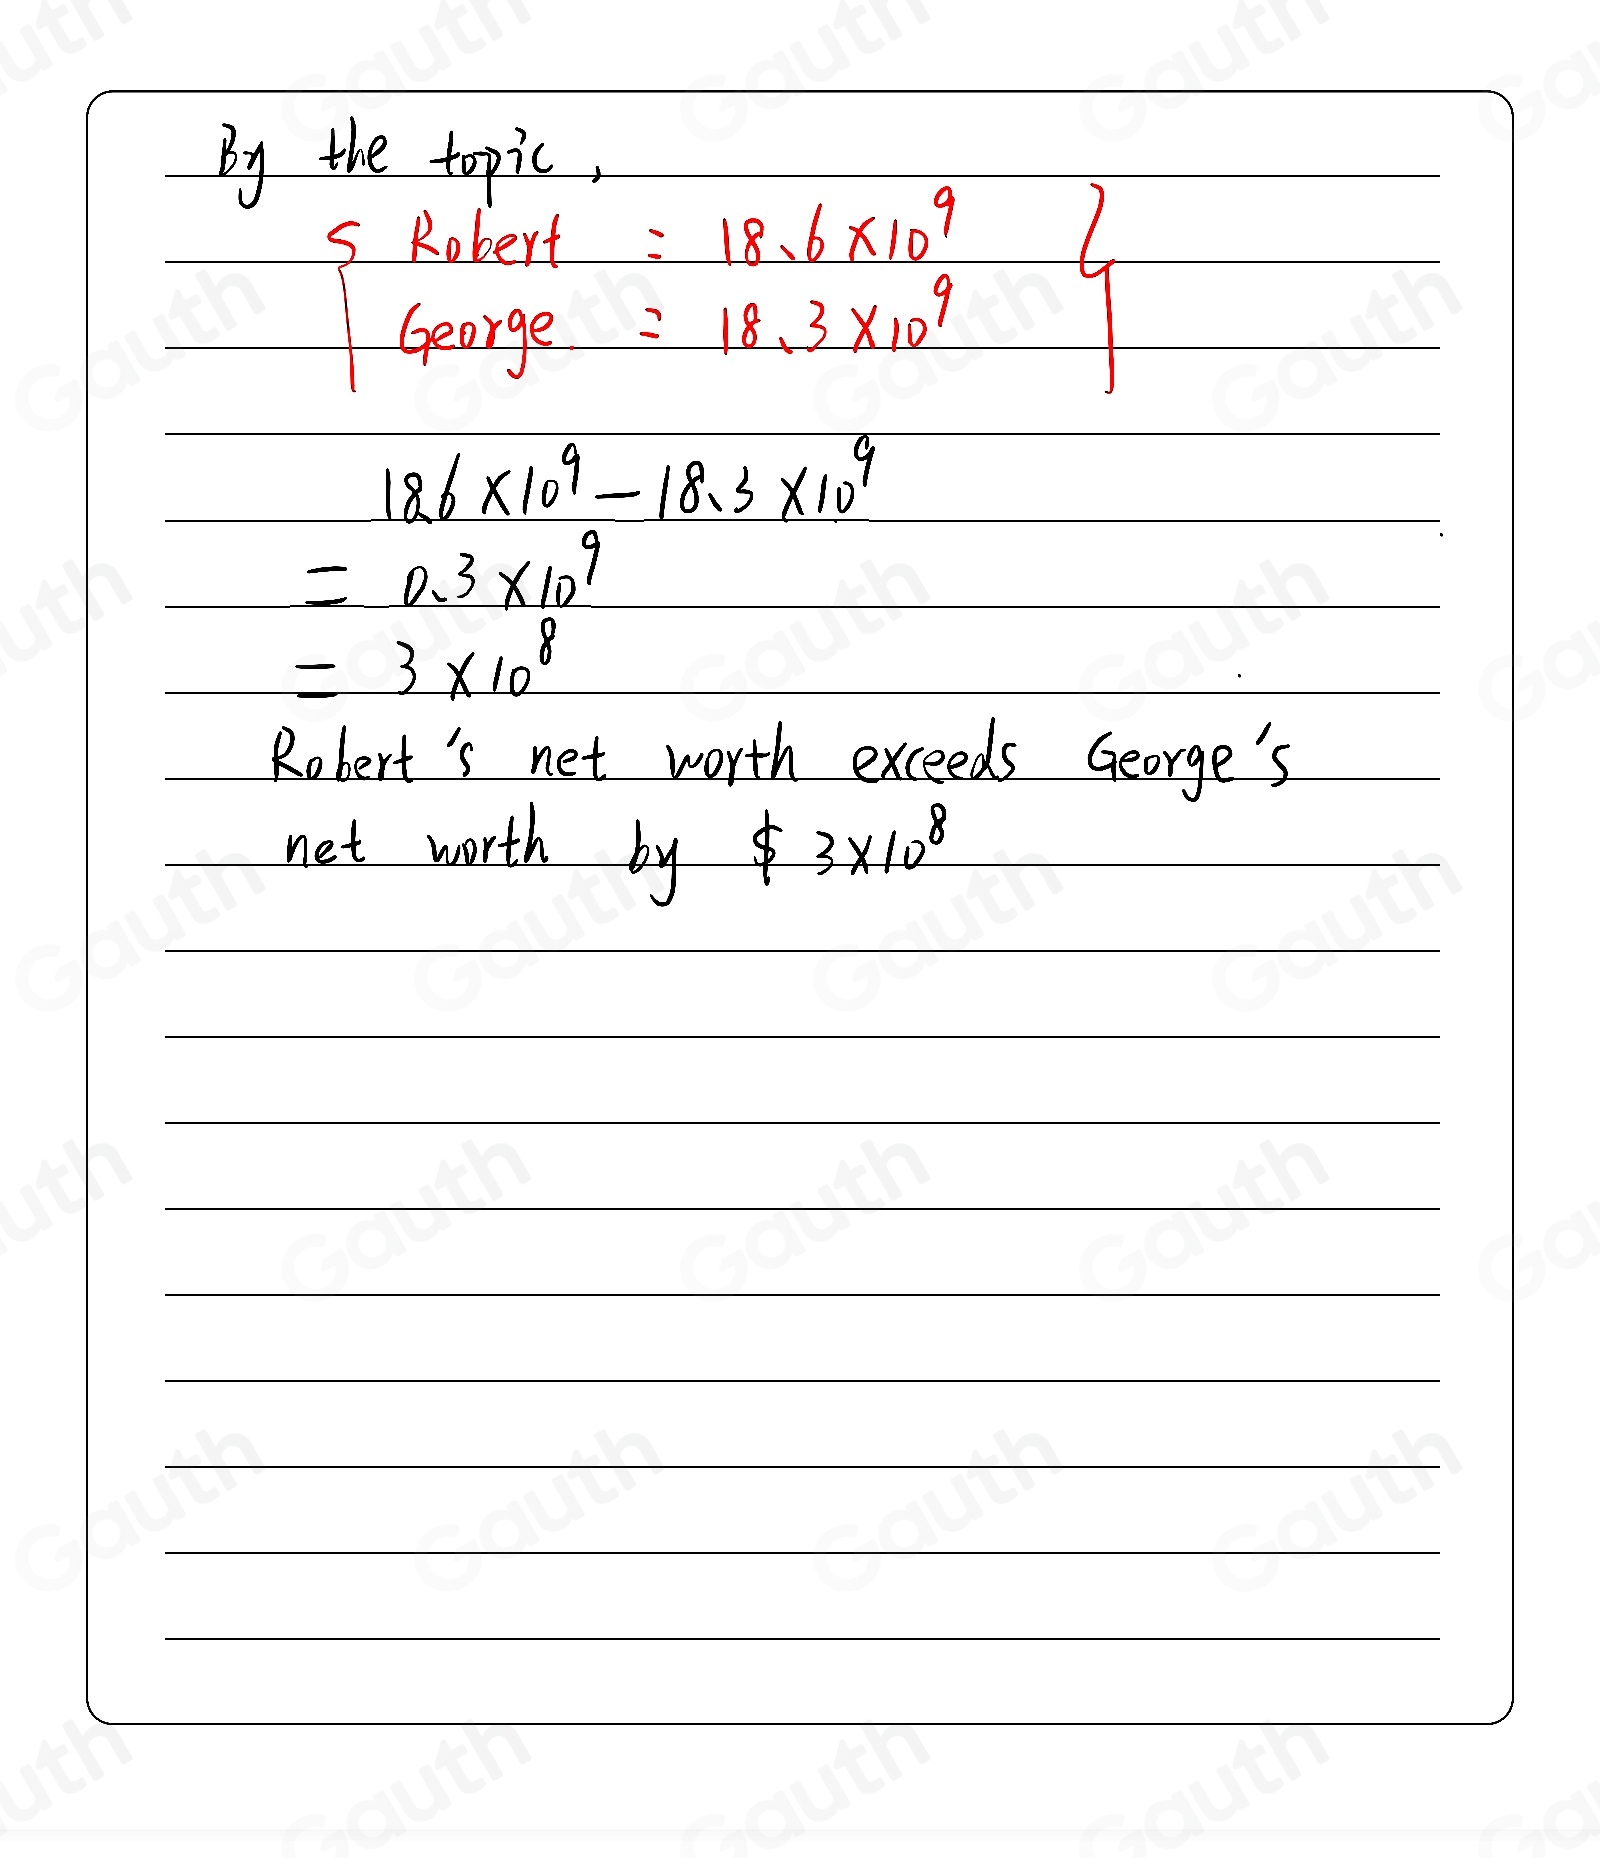 By the topic,
Robert = 18.6×10⁹
George = 18.3×10⁹
18.6×10⁹-18.3×10⁹
= 0.3×10⁹
= 3×10⁸
Robert's net worth exceeds George's
net worth by $3×10⁸